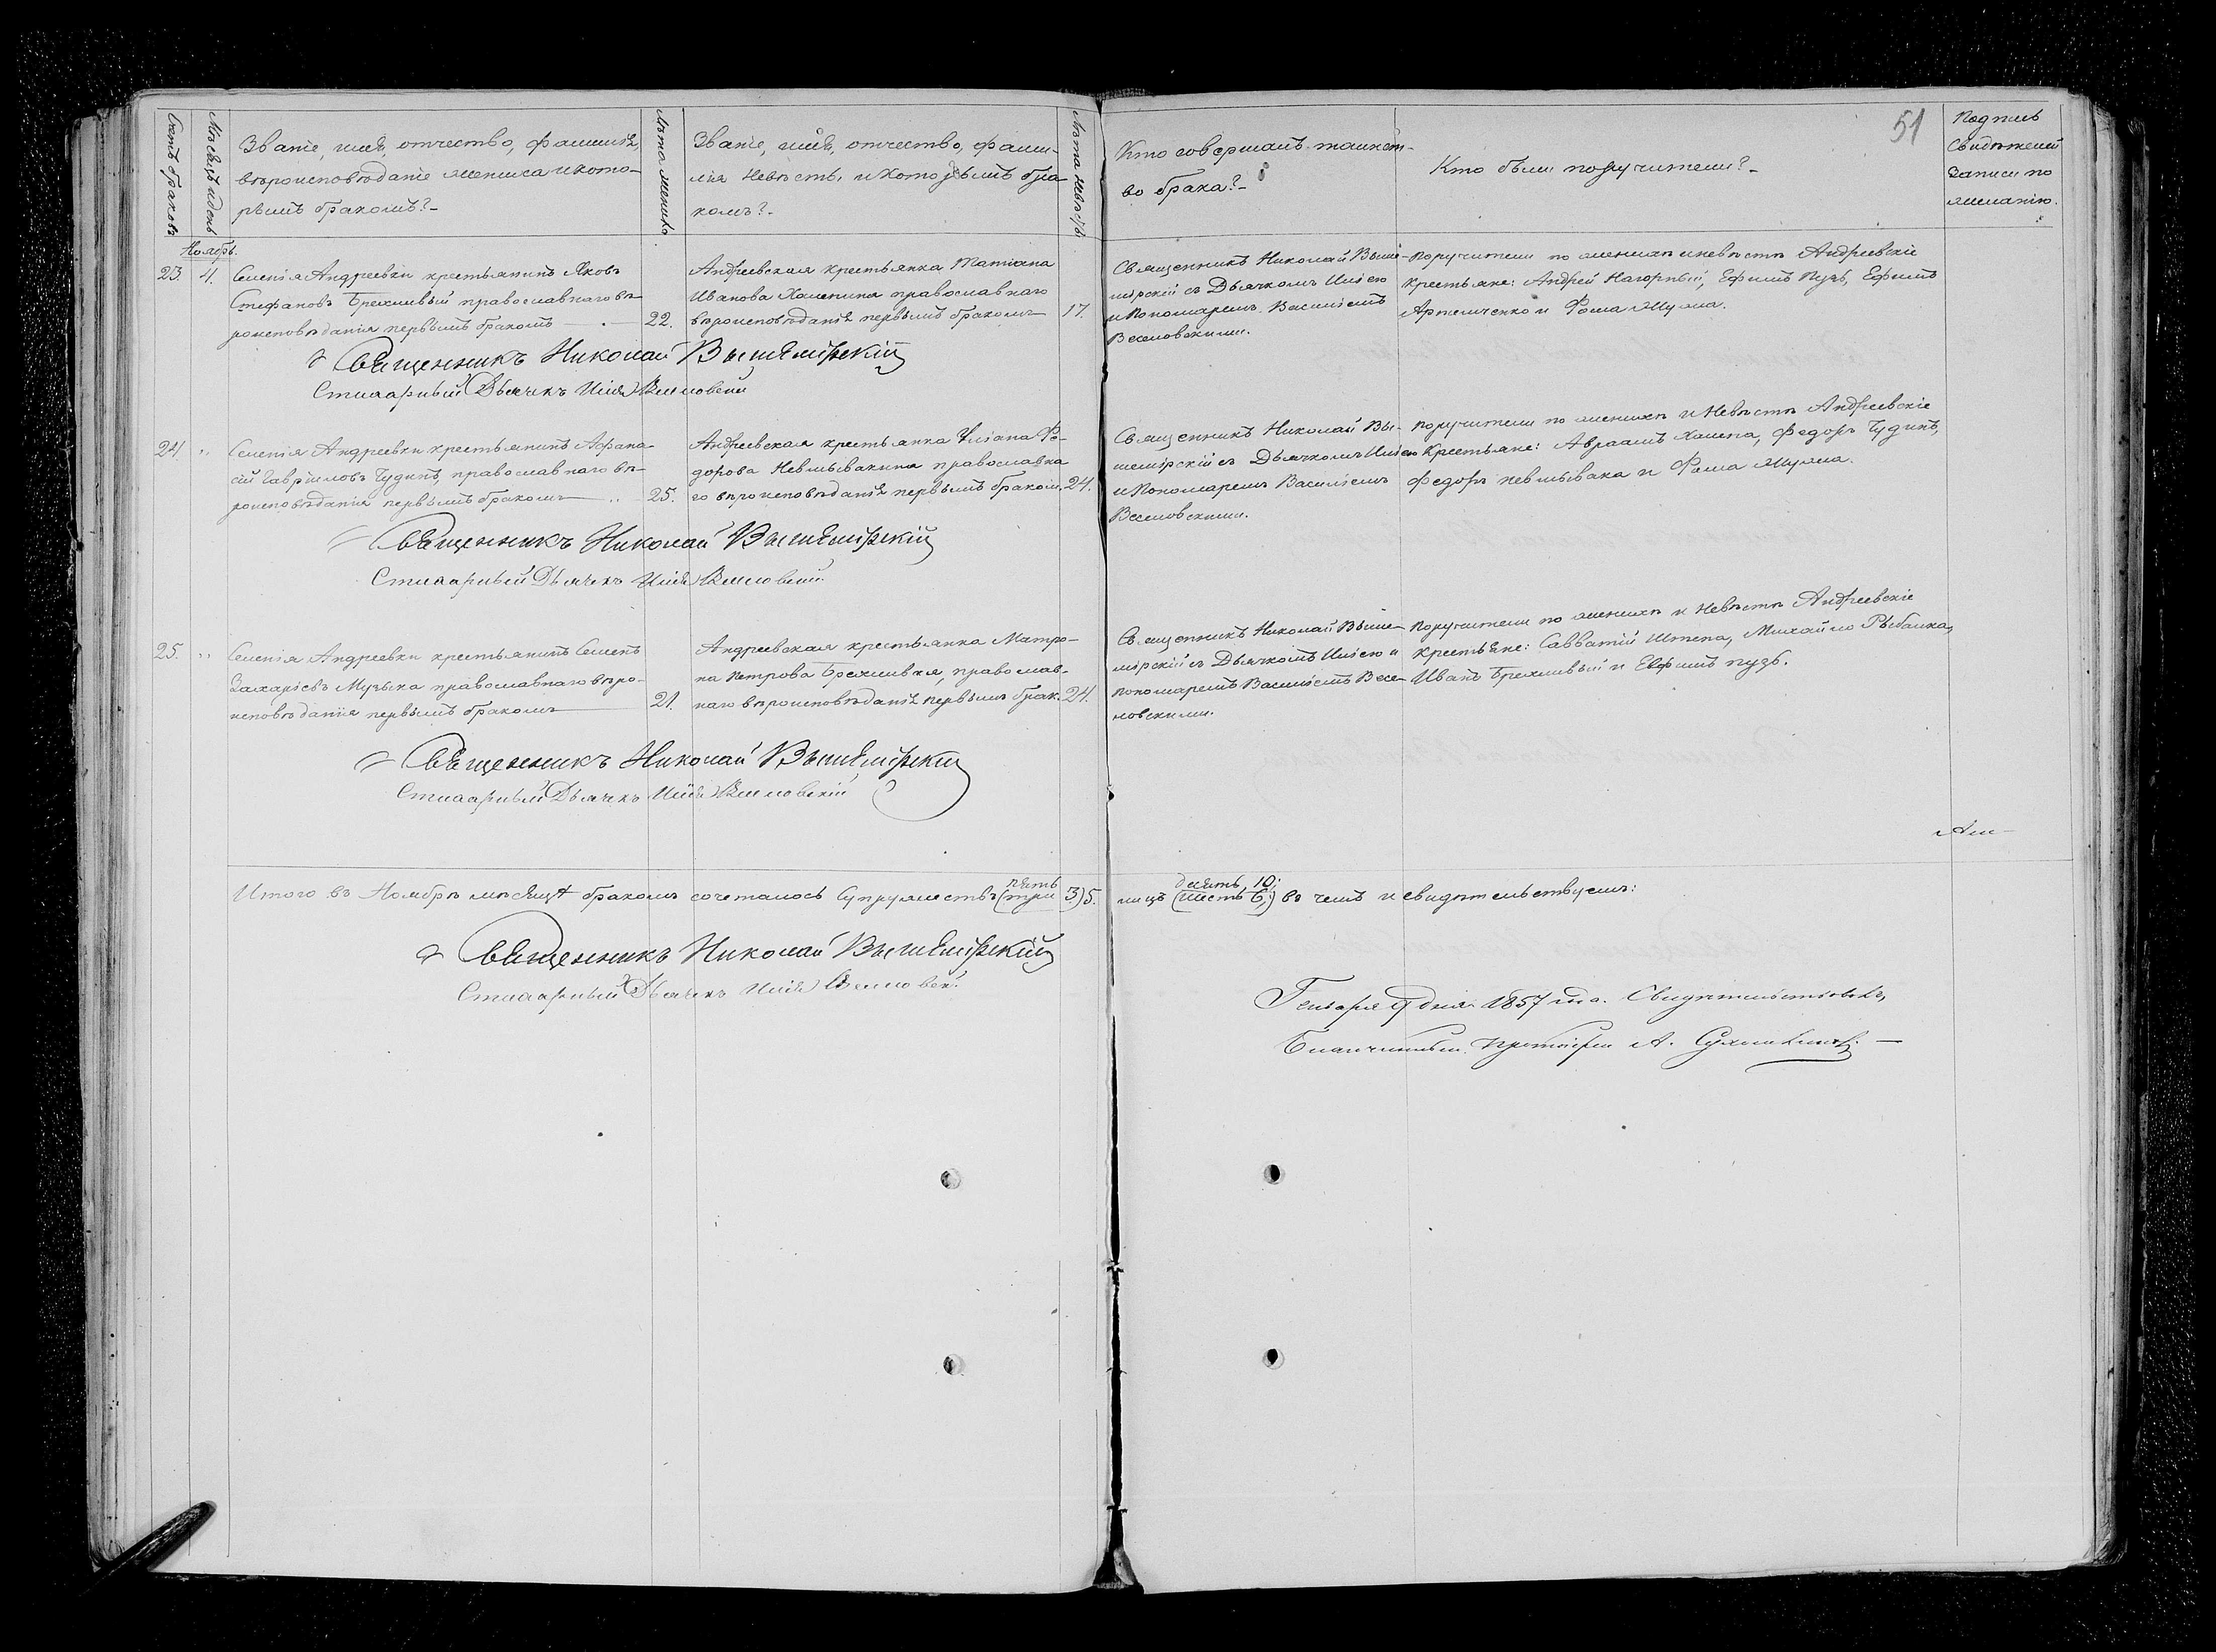 51
Счетъ браковъ
Мѣсяцъ и день
Званіе, имя, отчество, фамилія,
вѣроисповѣданіе жениха и кото-
рымъ бракомъ?-
Лѣта жениха.
Званіе, имя, отчество, фами-
лія невѣсты и которымъ бра-
комъ?-
Лѣта невѣсты.
Кто совершалъ таинст-
во брака?-
Кто были поручители?-
Подпись
Свидѣтелей
записи по
желанію.
Ноябрь.
23. 4.
Селенія Андреевки крестьянинъ Яковъ
Стефановъ Брехливый православнаго вѣ-
роисповѣданія первымъ бракомъ —
22.
Андреевская крестьянка Татіана
Иванова Хаменина православнаго
вѣроисповѣданія первымъ бракомъ
17.
Священникъ Николай Выше-
мірскій съ Дьячкомъ Иліею
и Пономаремъ Василіемъ
Веселовскими.
поручители по женихѣ и невѣстѣ Андреевскіе
крестьяне: Андрей Нагорный, Ефимъ Пузь, Ефимъ
Артемченко и Фома Мулма.
Священникъ Николай Вышемірскій
Стихарный Дьячекъ Илія Веселовскій
24. "
Селенія Андреевки крестьянинъ Афана-
сій Гавріиловъ Чудинъ, православнаго вѣ-
роисповѣданія первымъ бракомъ — "
25.
Андреевская крестьянка Уліана Фе-
дорова Невмывакина православна
го вѣроисповѣданія первымъ браком.
24.
Священникъ Николай Вы-
шемірскій съ Дьячкомъ Иліею
и Пономаремъ Василіемъ
Веселовскими.
поручители по женихѣ и невѣстѣ Андреевскіе
крестьяне: Авраамъ Хамена, Федоръ Чудинъ,
Федоръ Невмывака и Фома Мулма.
Священникъ Николай Вышемірскій
Стихарный Дьячекъ Илія Веселовскій
25. "
Селенія Андреевки крестьянинъ Семенъ
Захаріевъ Музыка православнаго вѣро-
исповѣданія первымъ бракомъ
21.
Андреевская крестьянка Матро-
на Петрова Брехливая, православ-
наго вѣроисповѣданія первымъ брак.
24.
Священникъ Николай Выше-
мірскій съ Дьячкомъ Иліею и
пономаремъ Василіемъ Весе-
ловскими.
Поручители по женихѣ и невѣстѣ Андреевскіе
крестьяне: Савватій Штепа, Михайло Рыбалка,
Иванъ Брехливый и Евфимъ пузь.
Священникъ Николай Вышемірскій
Стихарный Дьячекъ Илія Веселовскій
Итого въ Ноябрѣ мѣсяцѣ бракомъ сочеталось супружествъ (три 3.) пять 5.
лицъ (шесть 6.) десять, 10; въ чемъ и свидѣтельствуемъ:
Священникъ Николай Вышемірскій
Стихарный Дьячекъ Илія Веселовскій
Генваря 9 дня 1857 года. Свидѣтельствовалъ,
Благочинный, протоіерей А.